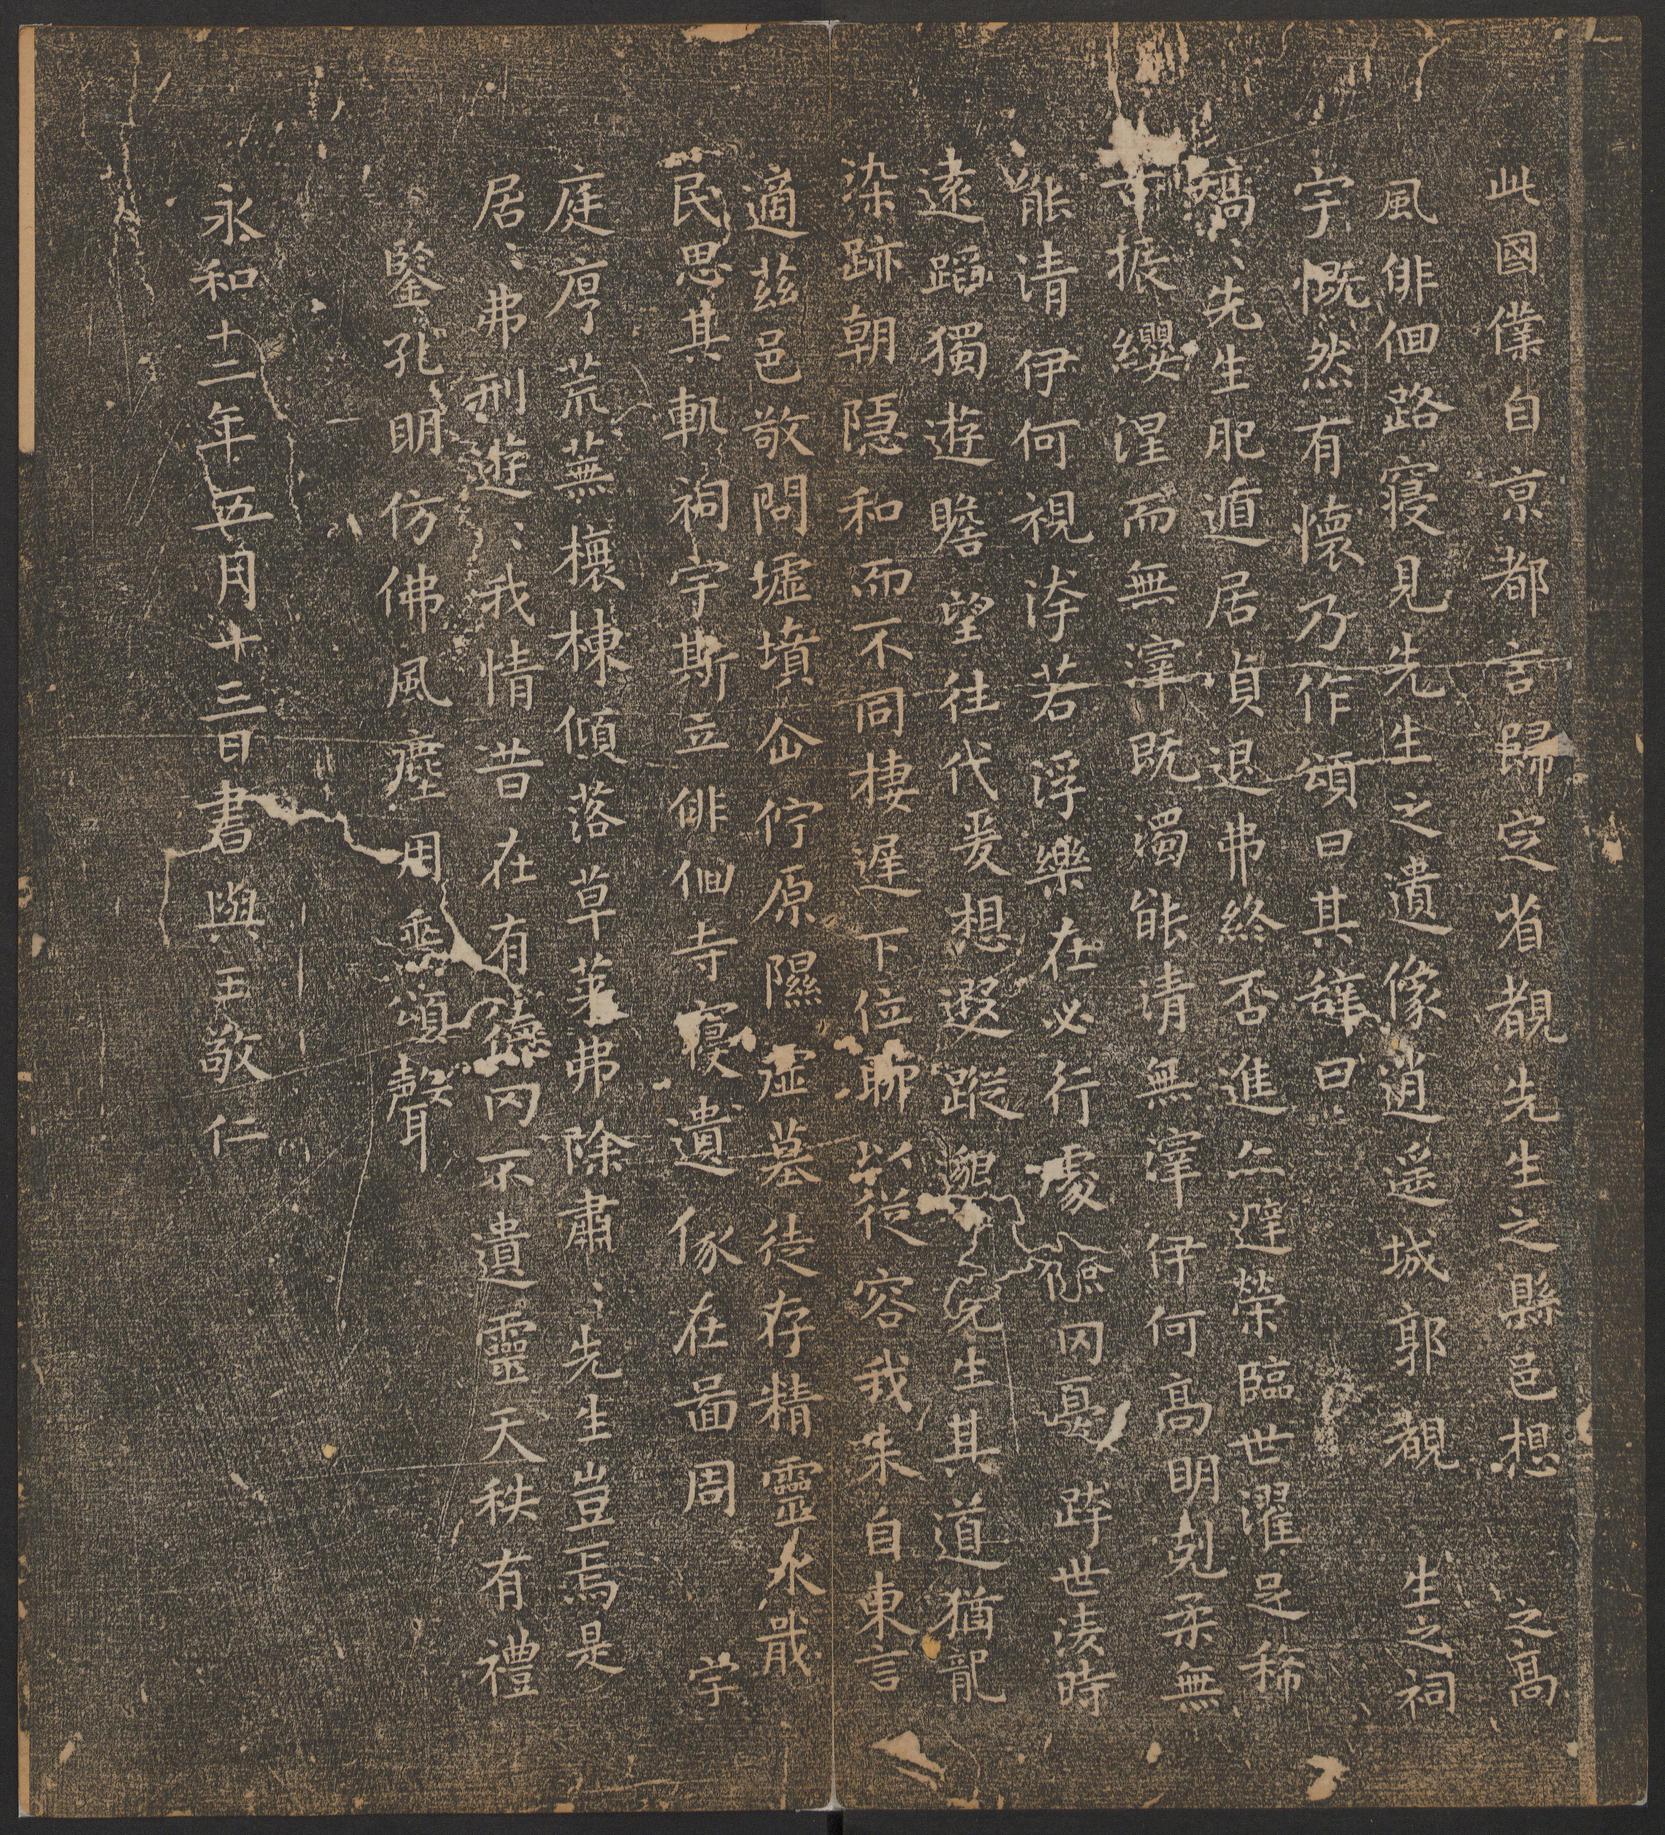 此國僕自京都言歸定省覩先生之縣邑想 之高
風俳佪路寢見先生之遺像逍遥城郭覩 生之祠
宇慨然有懷乃作頌曰其辭曰
矯〻先生肥遁居貞退弗終否進亦避榮臨世濯足稀
古振纓涅而無滓既濁能清無滓伊何高明剋柔無
能清伊何視汙若浮樂在必行處儉罔憂跨世淩時
遠蹈獨遊瞻望往代爰想遐蹤邈〻先生其道猶龍
染跡朝隱和而不同棲遲下位聊以從容我來自東言
適茲邑敬問墟墳企佇原隰虛墓徒存精靈永戢
民思其軌祠宇斯立俳佪寺寢遺像在啚周 宇
庭序荒蕪榱棟傾落草萊弗除肅〻先生豈焉是
居〻弗刑遊〻我情昔在有德罔不遺靈天秩有禮
鑒孔明仿佛風塵用垂頌聲
永和十二年五月十三日書與王敬仁